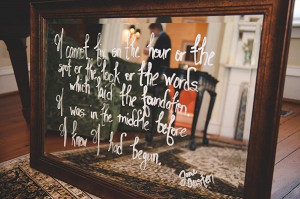 I cannot fix on the hour or the
spot or the look or the words
which laid the foundation
I was in the middle before
I knew I had begun.
Jane
Austen